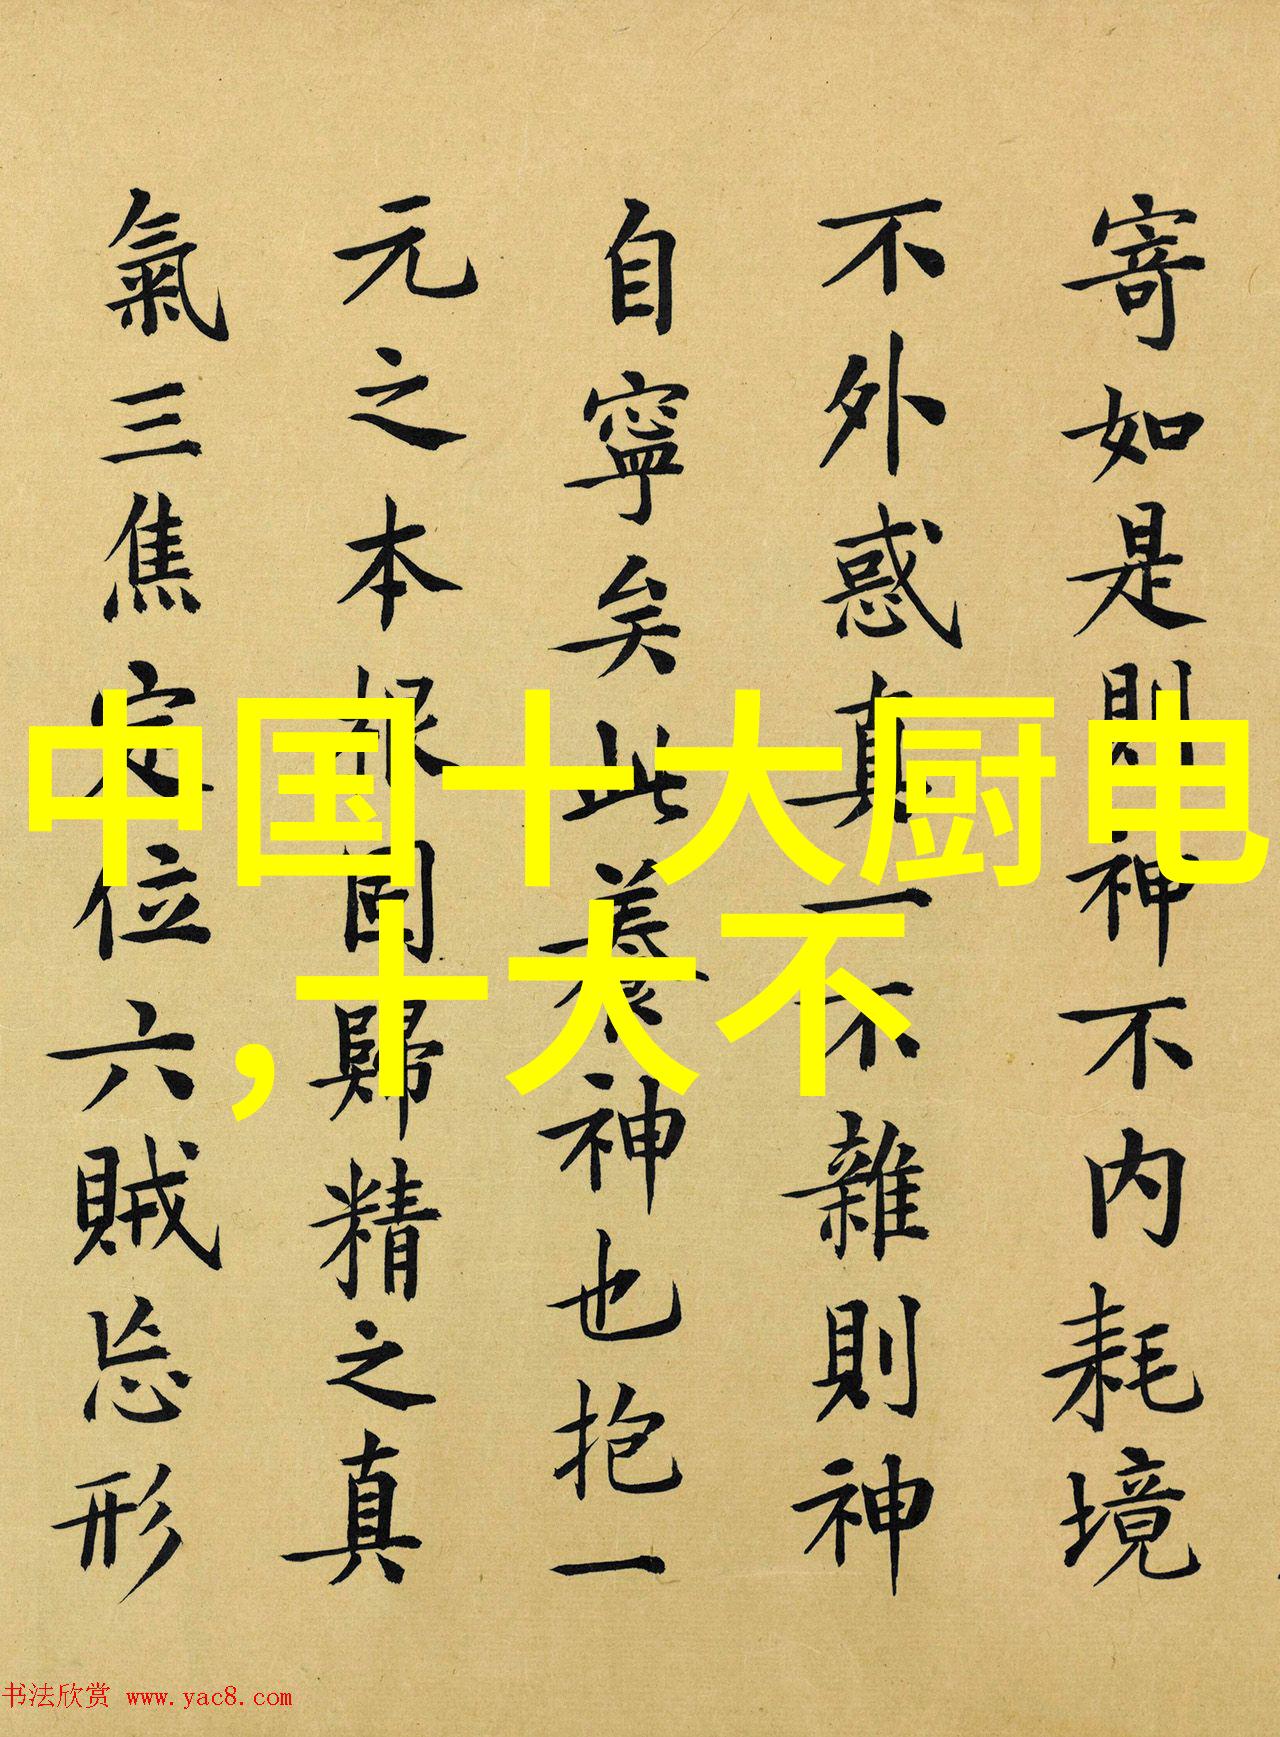 寄如是則神不内耗境
不外惑真一不雜則神
自寧矣此養神也抱一
元之本根固歸精之真
氣三焦定位六賊忘形
中国十大厨电
,十大不
书法欣赏 www.yac8.com